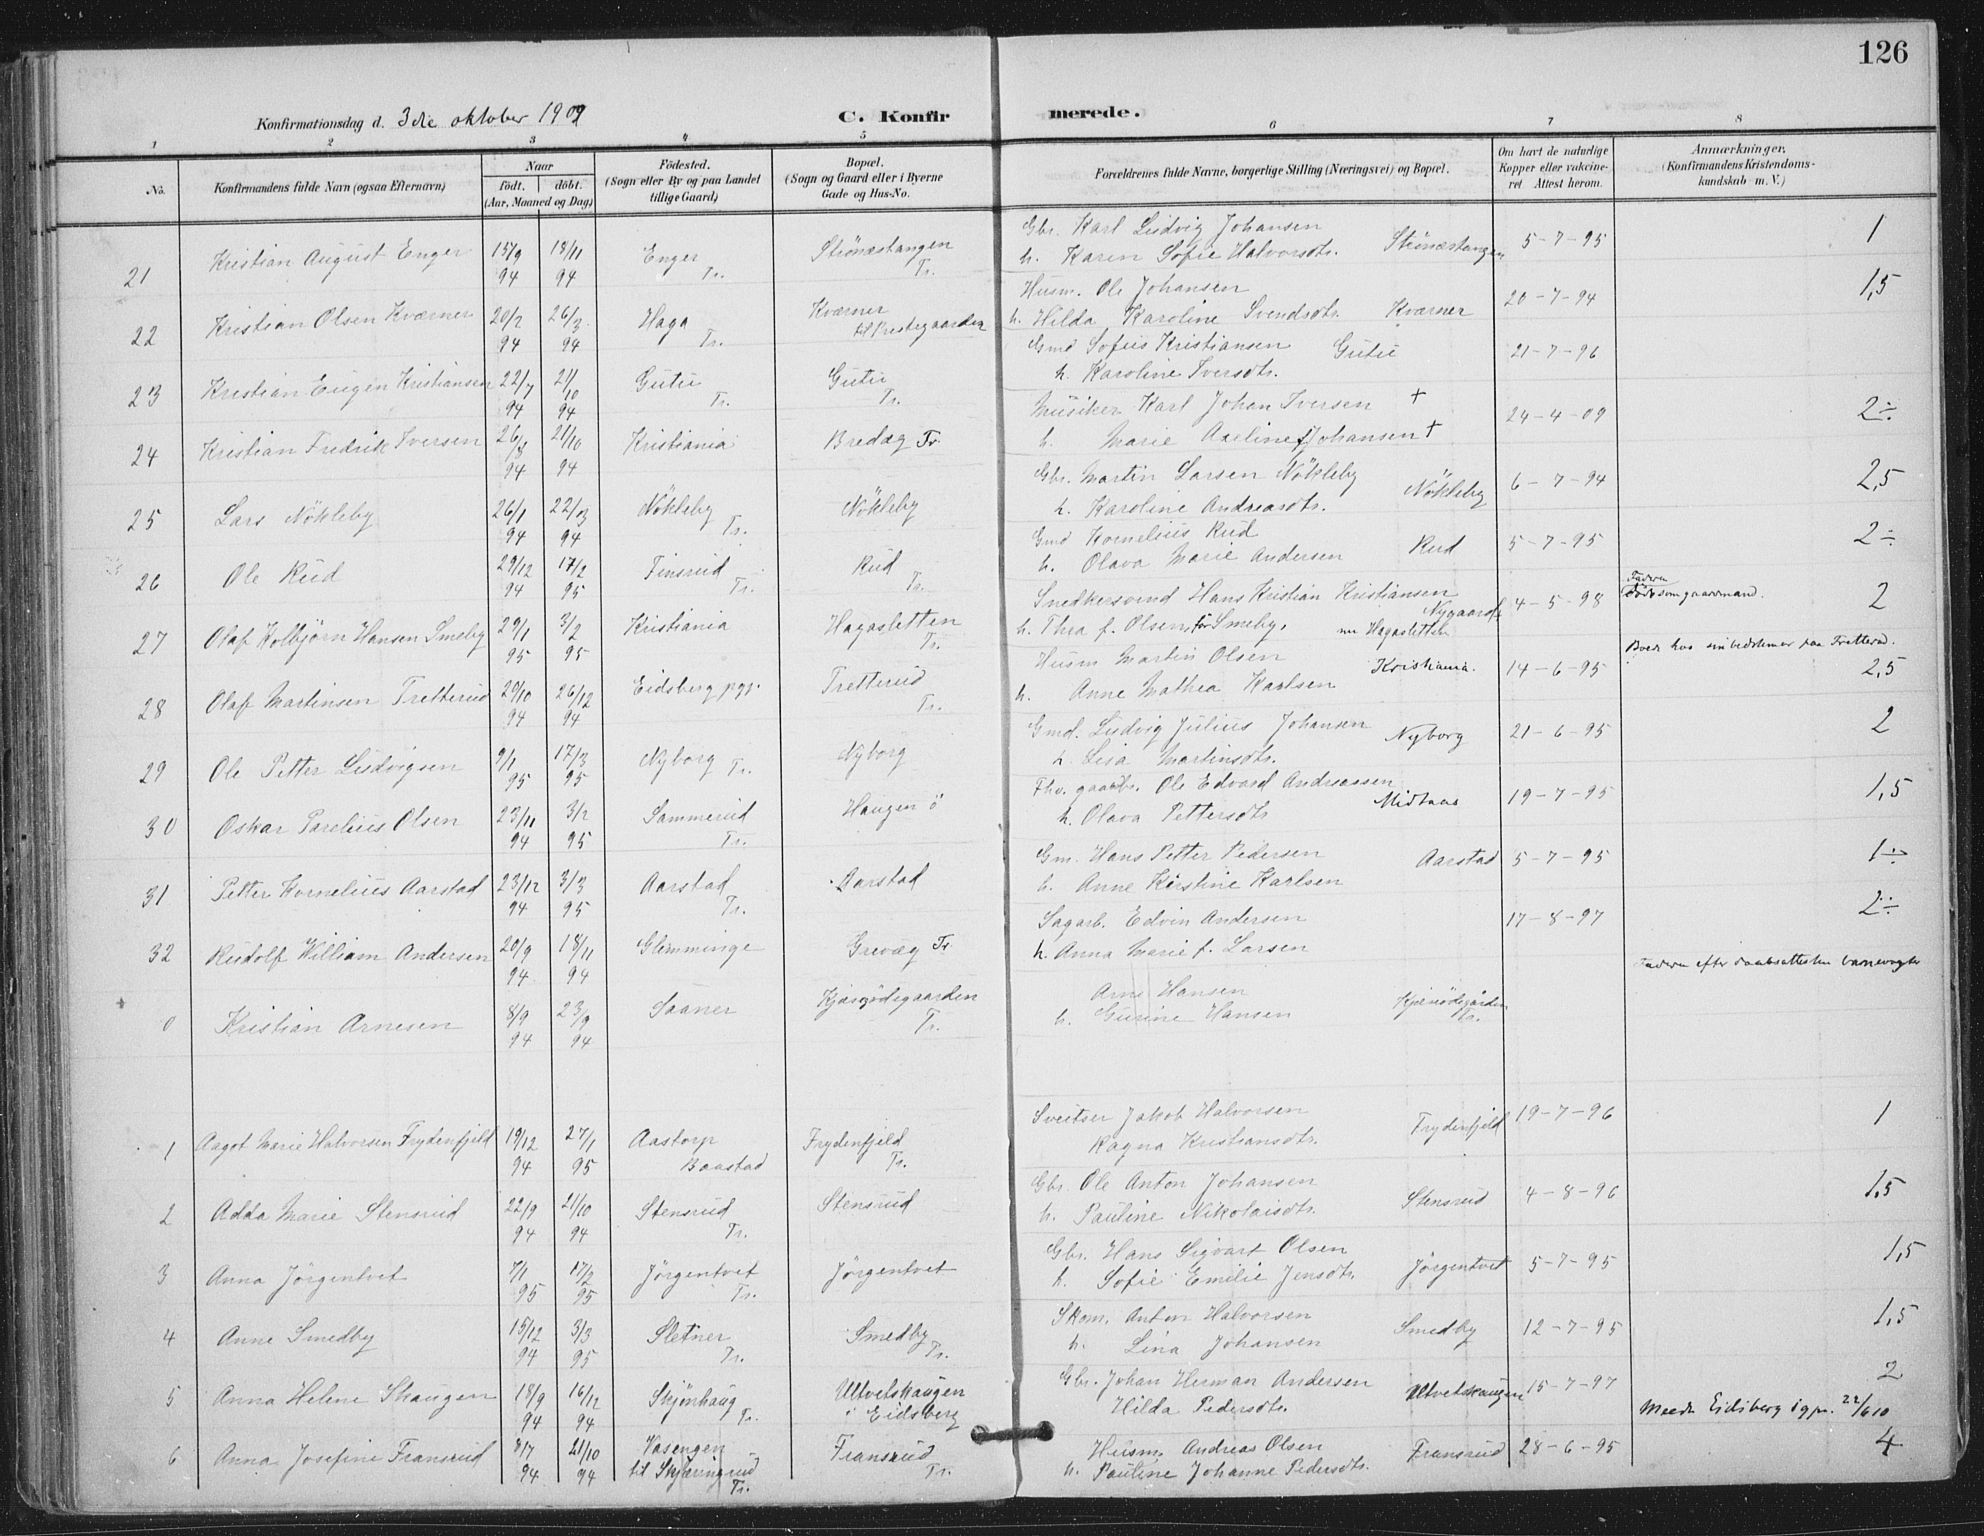 126
Konfirmationsdag d. 3die oktober 1909
C. Konfirmerede.
1 2 3 4 5 6 7 8
No. Konfirmandens fulde Navn (ogsaa Efternavn) Naar födt. döbt. (Aar, Maaned og Dag) Födested. (Sogn eller By og paa Landet tillige Gaard) Bopæl. (Sogn og Gaard eller i Byerne Gade og Hus-No.
Forældrenes fulde Navne, borgerlige Stilling (Næringsvei) og Bopæl. Om havt de naturlige Kopper eller vakcineret. Attest herom. Anmærkninger. (Konfirmandens Kristendomskundskab m. V.)
21 Kristian August Enger 15/9 94 18/11 94 Enger Tr. Strönæstangen Tr. Gbr. Karl Ludvig Johansen h. Karen Sofie Halvorsdtr. Strönæstangen 5-7-95 1
22 Kristian Olsen Kværner 20/2 94 26/3 94 Haga Tr. Kværner til Prestegaarden Husm. Ole Johansen h. Hilda Karoline Svendsdtr. Kværner 20-7-94 1,5
23 Kristian Eugen Kristiansen 22/7 94 21/10 94 Gutu Tr. Gutu Tr. Gmd Sofus Kristiansen h. Karoline Iversdtr. Gutu 21-7-96
24 Kristian Fredrik Iversen 26/8 94 21/10 94 Kristiania Bredag Tr. Musiker Karl Johan Iversen + h. Marie Axeline f. Johansen + 24-4-09 2÷
25 Lars Nökleby 26/1 94 22/3 94 Nökleby Tr. Nökleby Gbr. Martin Larsen Nökleby h. Karoline Andreasdtr. Nökleby 6-7-94 2,5
26 Ole Rud 29/12 94 17/2 95 Finsrud Tr. Rud Tr. Gmd Kornelius Rud h. Olava Marie Andersen Rud 5-7-95 2÷
27 Olaf Kolbjörn Hansen Smeby 29/1 95 3/2 95 Kristiania Hagasletten Tr. Snedkersvend Hans Kristian Kristiansen Nygaardst h. Thea f. Olsen, for Smeby, nu Hagasletten 4-5-98 Faderen som gaardmand. 2
28 Olaf Martinsen Tretterud 29/10 94 26/12 94 Eidsberg pgj. Tretterud Tr. Husm Martin Olsen h. Anne Mathea Karlsen Kristiania. 14-6-95 Boede hos sin bedstemor paa Tretterud. 2,5
29 Ole Petter Ludvigsen 9/1 95 17/3 95 Nyborg Tr. Nyborg Gmd. Ludvig Julius Johansen h. Lisa Martinsdtr. Nyborg 21-6-95 2
30 Oskar Parelius Olsen 23/11 94 3/2 95 Sammerud Tr. Haugen ö Fhv. gaardbr. Ole Edvard Andreassen h. Olava Pettersdtr Midtaas 19-7-95 1,5
31 Petter Kornelius Aarstad 23/12 94 3/3 95 Aarstad Tr. Aarstad Gm. Hans Petter Pedersen h. Anne Kirstine Karlsen Aarstad 5-7-95 1÷
32 Rudolf William Andersen 20/9 94 18/11 94 Glimminge Grevæg Tr. Sagarb. Edvin Andersen h. Anna Marie f. Larsen 17-8-97 2÷
0 Kristian Arnesen 8/9 94 23/9 94 Saaner Kjærödegaarden Tr. Arne Hansen h. Gurine Hansen Kjærödegården Tr. Faderen efter daabsattesten banevogter
1 Aagot Marie Halvorsen Frydenfjeld 19/12 94 27/1 95 Aastorp Baastad Frydenfjeld Tr. Sveitser Jakob Halvorsen Ragna Kristiansdtr. Frydenfjeld 19-7-96 1
2 Adda Marie Stensrud 22/9 94 21/10 94 Stensrud Tr. Stensrud Gbr. Ole Anton Johansen h. Pauline Nikolaisdtr. Stensrud 4-8-96 1,5
3 Anna Jörgentvet 7/1 95 17/2 95 Jörgentvet Tr. Jörgentvet Gbr. Hans Sigvart Olsen h. Sofie Emilie Jensdtr. Jörgentvet 5-7-95 1,5
4 Anne Smedby 15/12 94 3/3 95 Sletner Tr. Smedby Tr. Skom. Anton Halvorsen h. Lina Johansen Smedby 12-7-95 1,5
5 Anna Helene Skaugen 18/9 94 16/12 94 Skjönhaug Tr. Ultvetskaugen i Eidsberg Gbr. Johan Herman Andersen Hilda Pedersdtr. Ultvetskaugen 15-7-97 2
6 Anna Josefine Fransrud 8/7 94 21/10 94 Vasengen til Skjæringrud Tr. Fransrud Tr. Husm. Andreas Olsen h. Pauline Johanne Pedersdtr. Fransrud 28-6-95 Meedt Eidsberg sgpr. 22/6 10 4